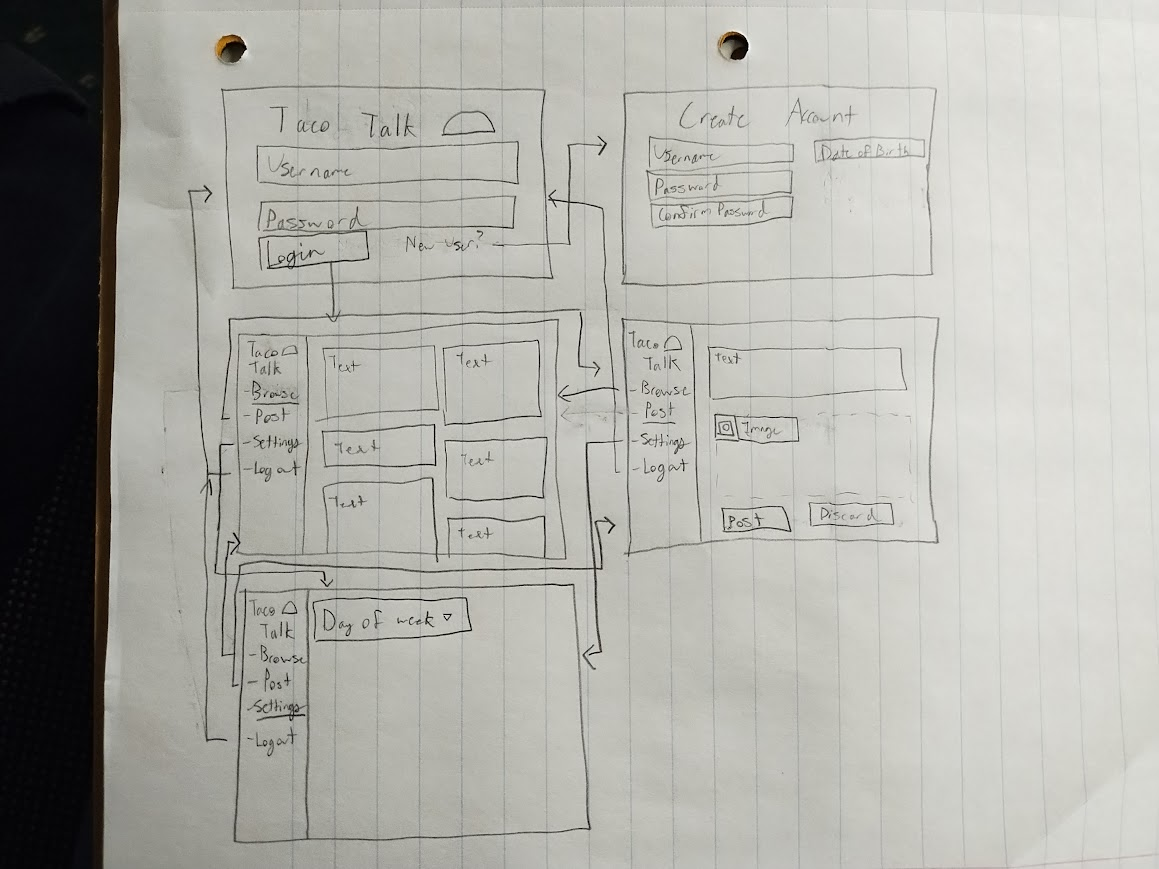 Taco Talk
Username
Password
Login
New User?
Create Account
Username
Date of Birth
Password
Confirm Password
Taco
Talk
-Browse
-Post
-Settings
-Logout
Text
Text
Text
Text
Text
Text
Taco
Talk
-Browse
-Post
-Settings
-Logout
Text
Image
Post
Discard
Taco
Talk
-Browse
-Post
-Settings
-Logout
Day of week